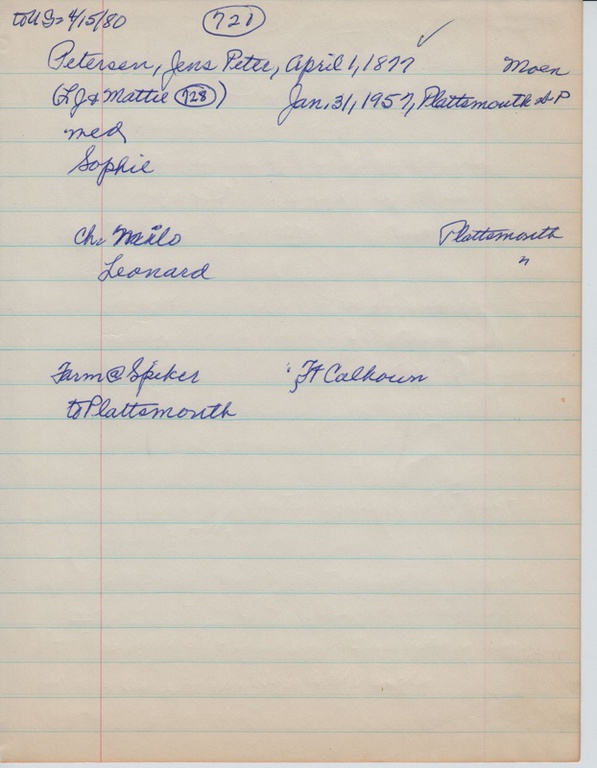 to U.S. 4/15/80 721
Petersen, Jens Peter, April 1, 1877 Moen
(L J & Mattie 728) Jan. 31, 1957, Plattsmouth
med
Sophie
Ch: Milo Plattsmouth
Leonard "
Farm @ Spiker Ft Calhoun
to Plattsmouth